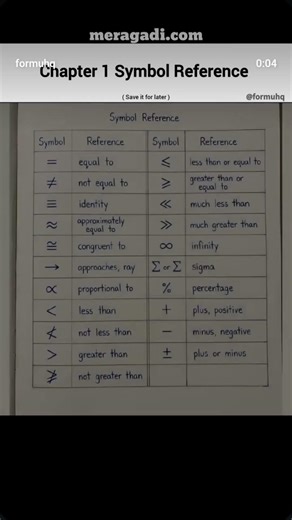 meragadi.com
formuhq
0:04
Chapter 1 Symbol Reference
( Save it for later )
@formuhq
Symbol Reference
Symbol Reference Symbol Reference
= equal to ≤ less than or equal to
≠ not equal to ⩾ greater than or
equal to
≡ identity ≪ much less than
≈ approximately
equal to ≫ much greater than
≅ congruent to ∞ infinity
→ approaches, ray Σ or Σ sigma
∝ proportional to % percentage
< less than + plus, positive
≮ not less than − minus, negative
> greater than ± plus or minus
≱ not greater than